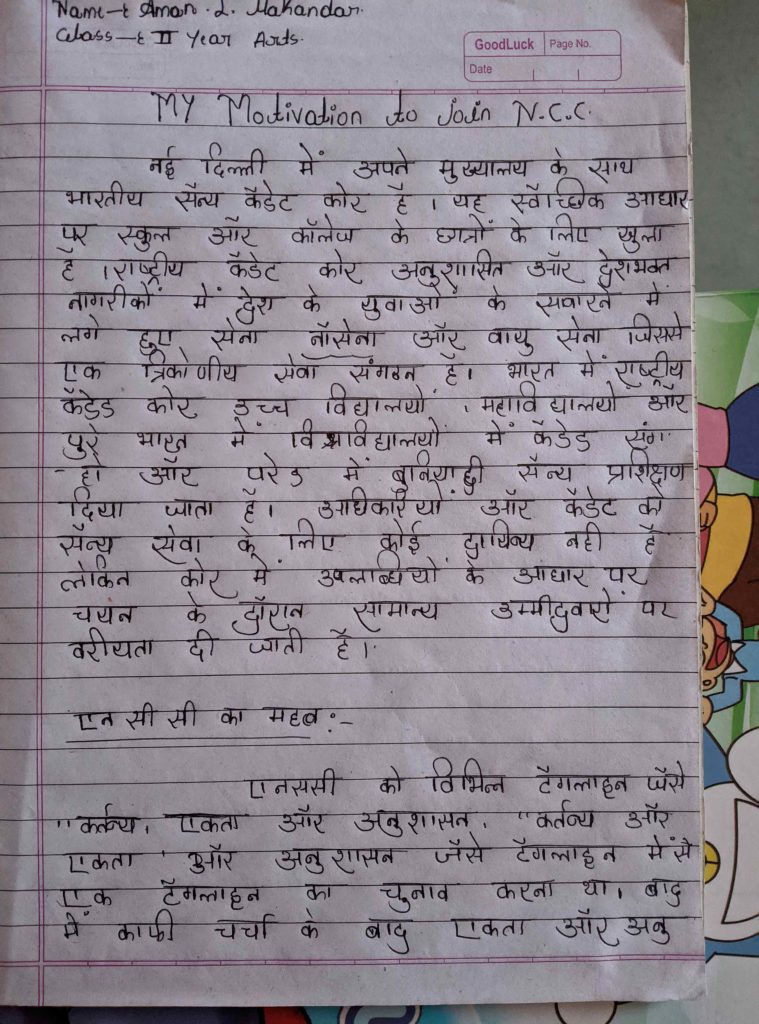 Name-: Aman. L. Makandar.
Class-: II Year Arts.
GoodLuck Page No.
Date
My Motivation to join N.C.C.
नई दिल्ली में अपने मुख्यालय के साथ
भारतीय सैन्य कॅडेट कोर है । यह स्वैच्छिक आधार
पर स्कुल और कॉलेज के छात्रों के लिए खुला
है । राष्ट्रीय कॅडेट कोर अनुशासित और देशभक्त
नागरीकों में देश के युवाओं के सवारने में
लगे हुए सेना नौसेना और वायु सेना जिससे
एक त्रिकोणीय सेवा संगठन है। भारत में राष्ट्रीय
कॅडेड कोर उच्च विद्यालयों , महाविद्यालयों और
पुरे भारत में विश्वविद्यालयों में कॅडेड संग
हो और परेड में बुनियादी सैन्य प्रशिक्षण
दिया जाता है। अधिकारियों और कॅडेट को
सैन्य सेवा के लिए कोई दायित्व नही है
लेकिन कोर में उपलब्धियों के आधार पर
चयन के दौरान सामान्य उम्मीदवारों पर
वरीयता दी जाती है।
एन सी सी का महत्व :-
एनससी को विभिन्न टैगलाइन जैसे
"कर्तव्य, एकता और अनुशासन, "कर्तव्य और
एकता" और अनुशासन जैसे टैगलाइन में से
एक टैगलाइन का चुनाव करना था। बाद
में काफी चर्चा के बाद एकता और अनु